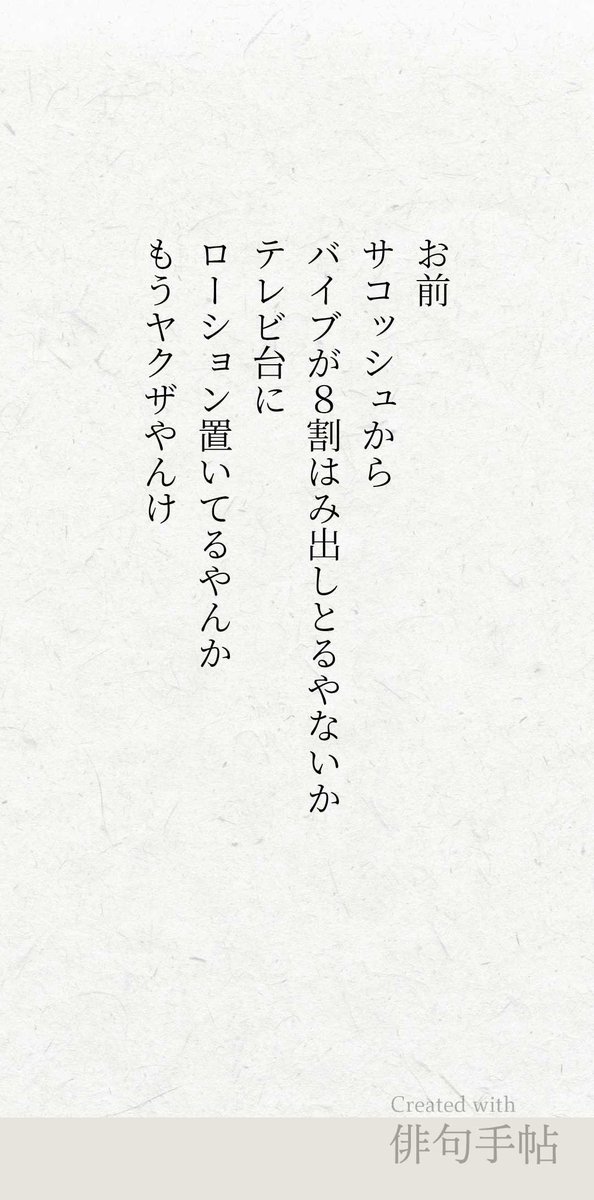 お前
サコッシュから
バイブが８割はみ出しとるやないか
テレビ台に
ローション置いてるやんか
もうヤクザやんけ
Created with
俳句手帖